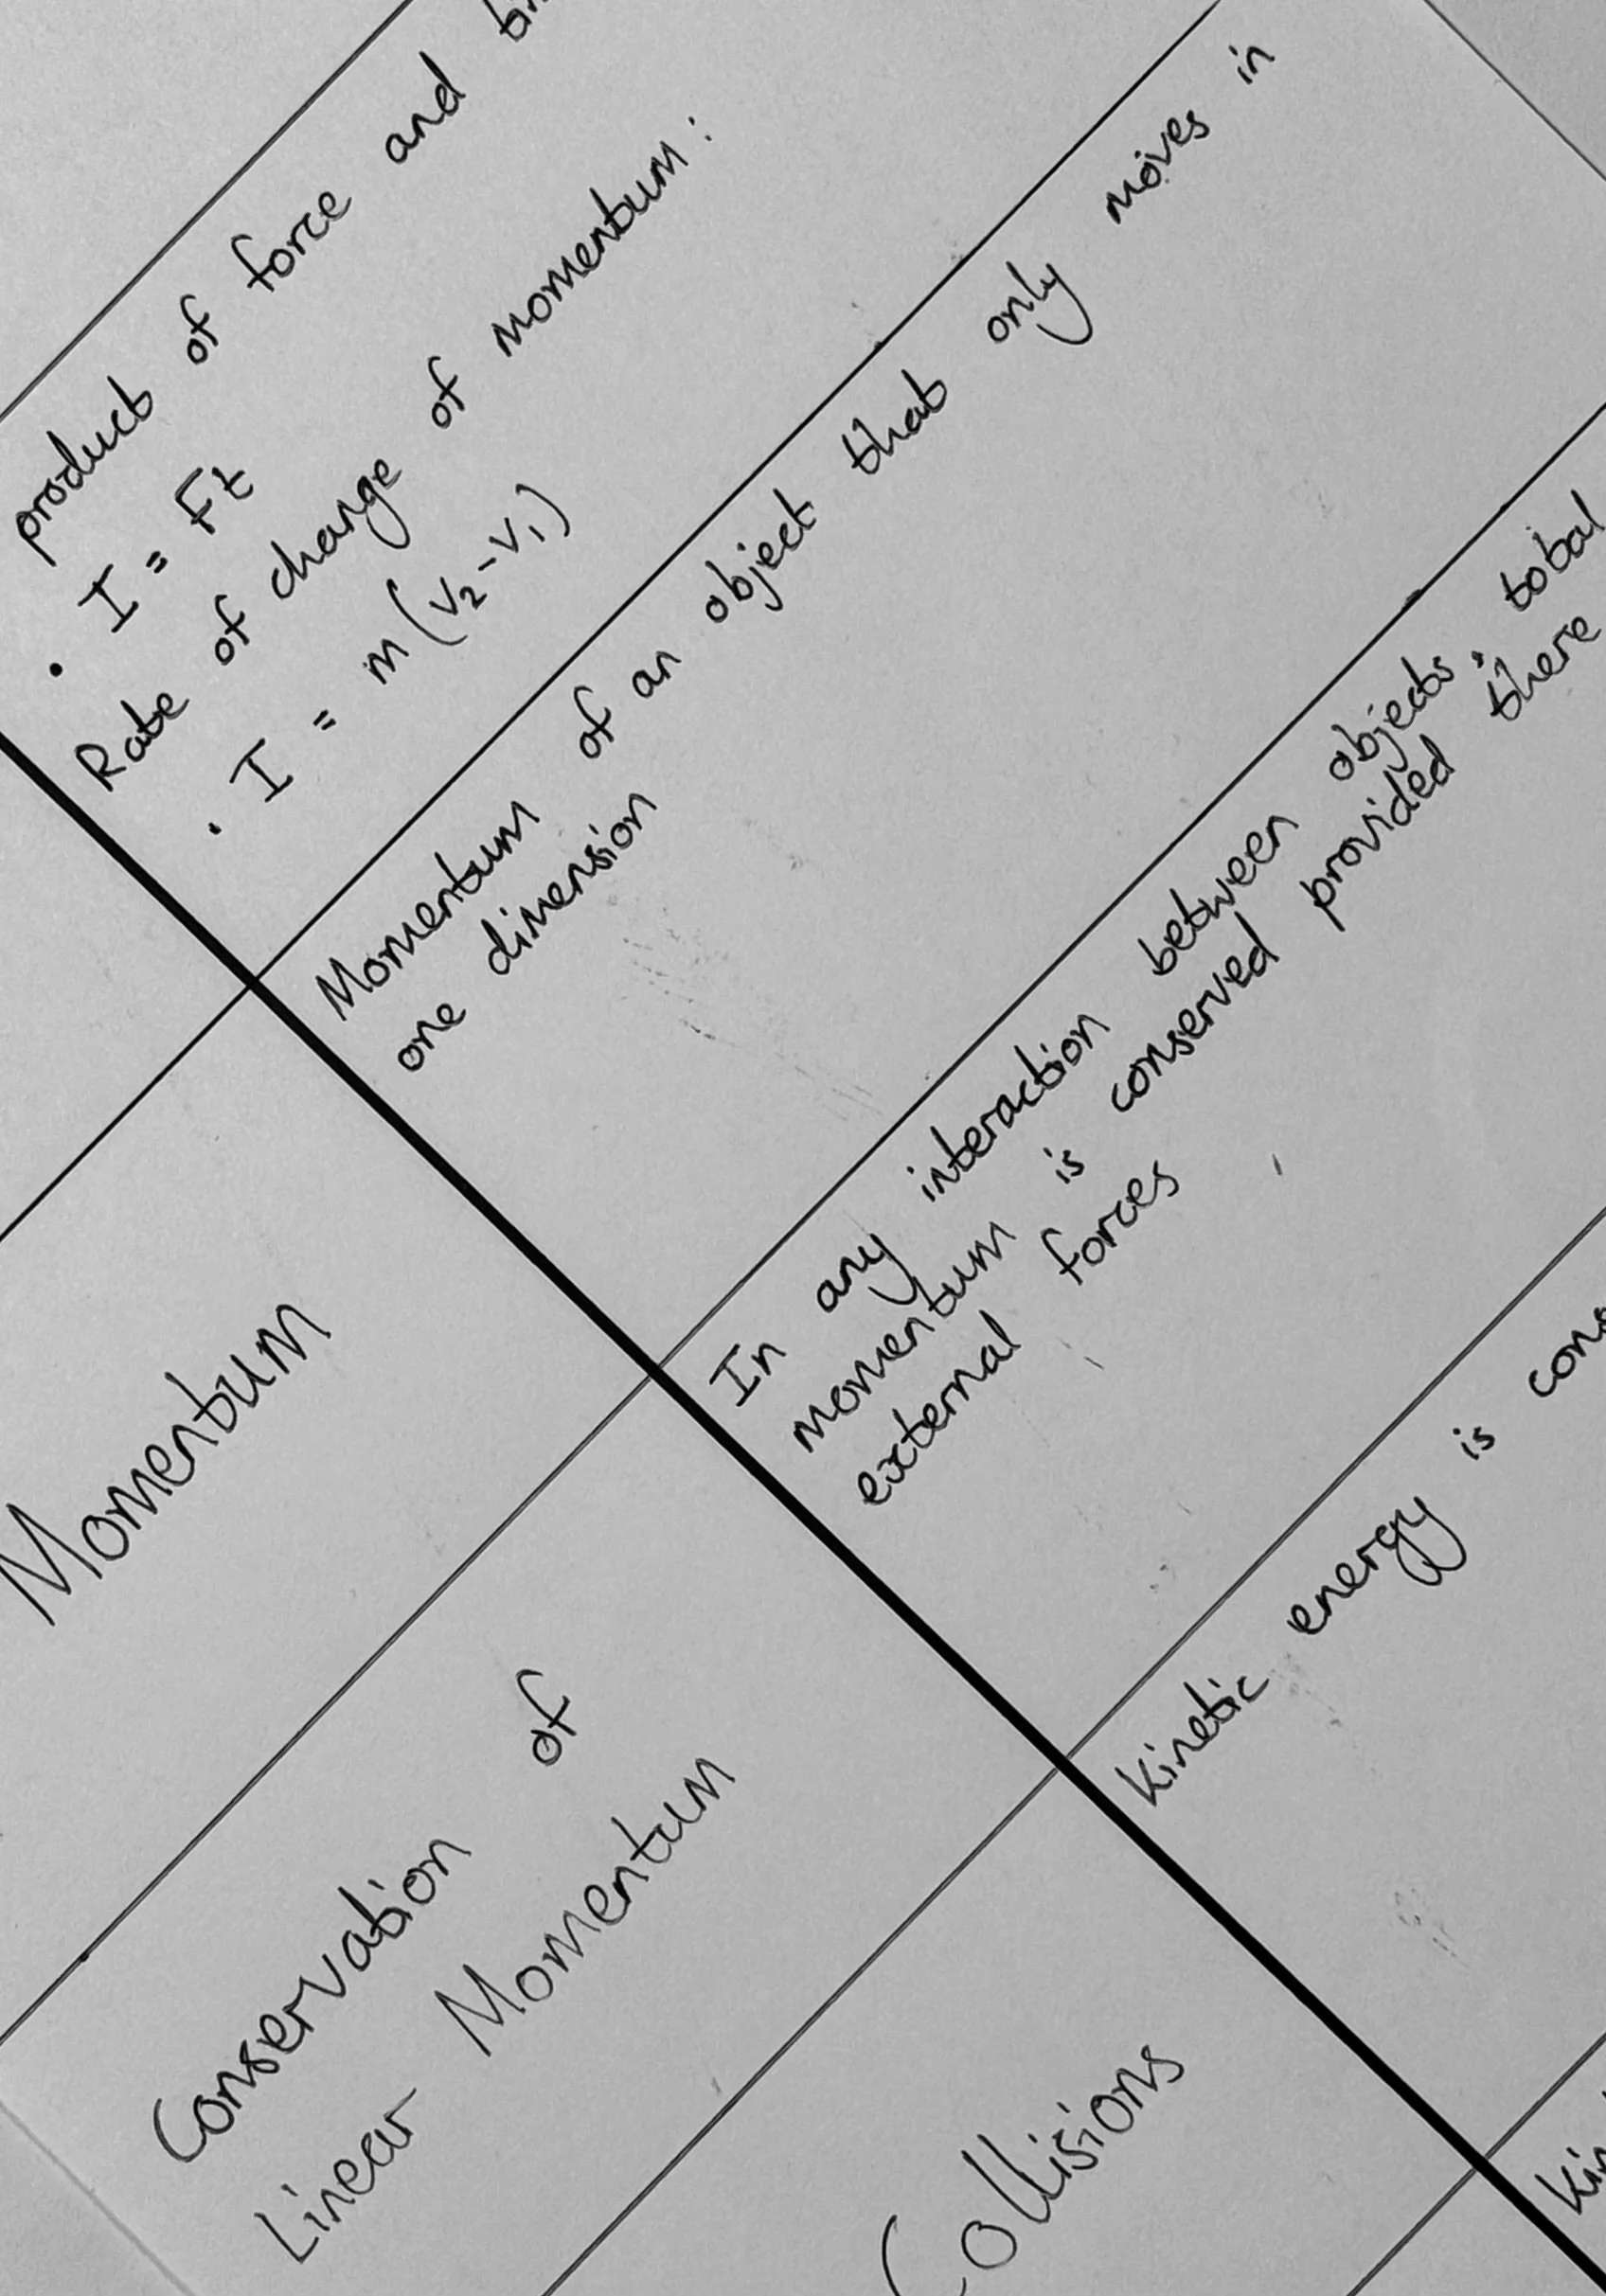 product of force and
· I = Ft
Rate of change of momentum:
· I = m(v₂-v₁)
Momentum
Momentum of an object that only moves in
one dimension
Conservation of
Linear Momentum
In any interaction between objects, total
momentum is conserved provided there
external forces
Collisions
Kinetic energy is